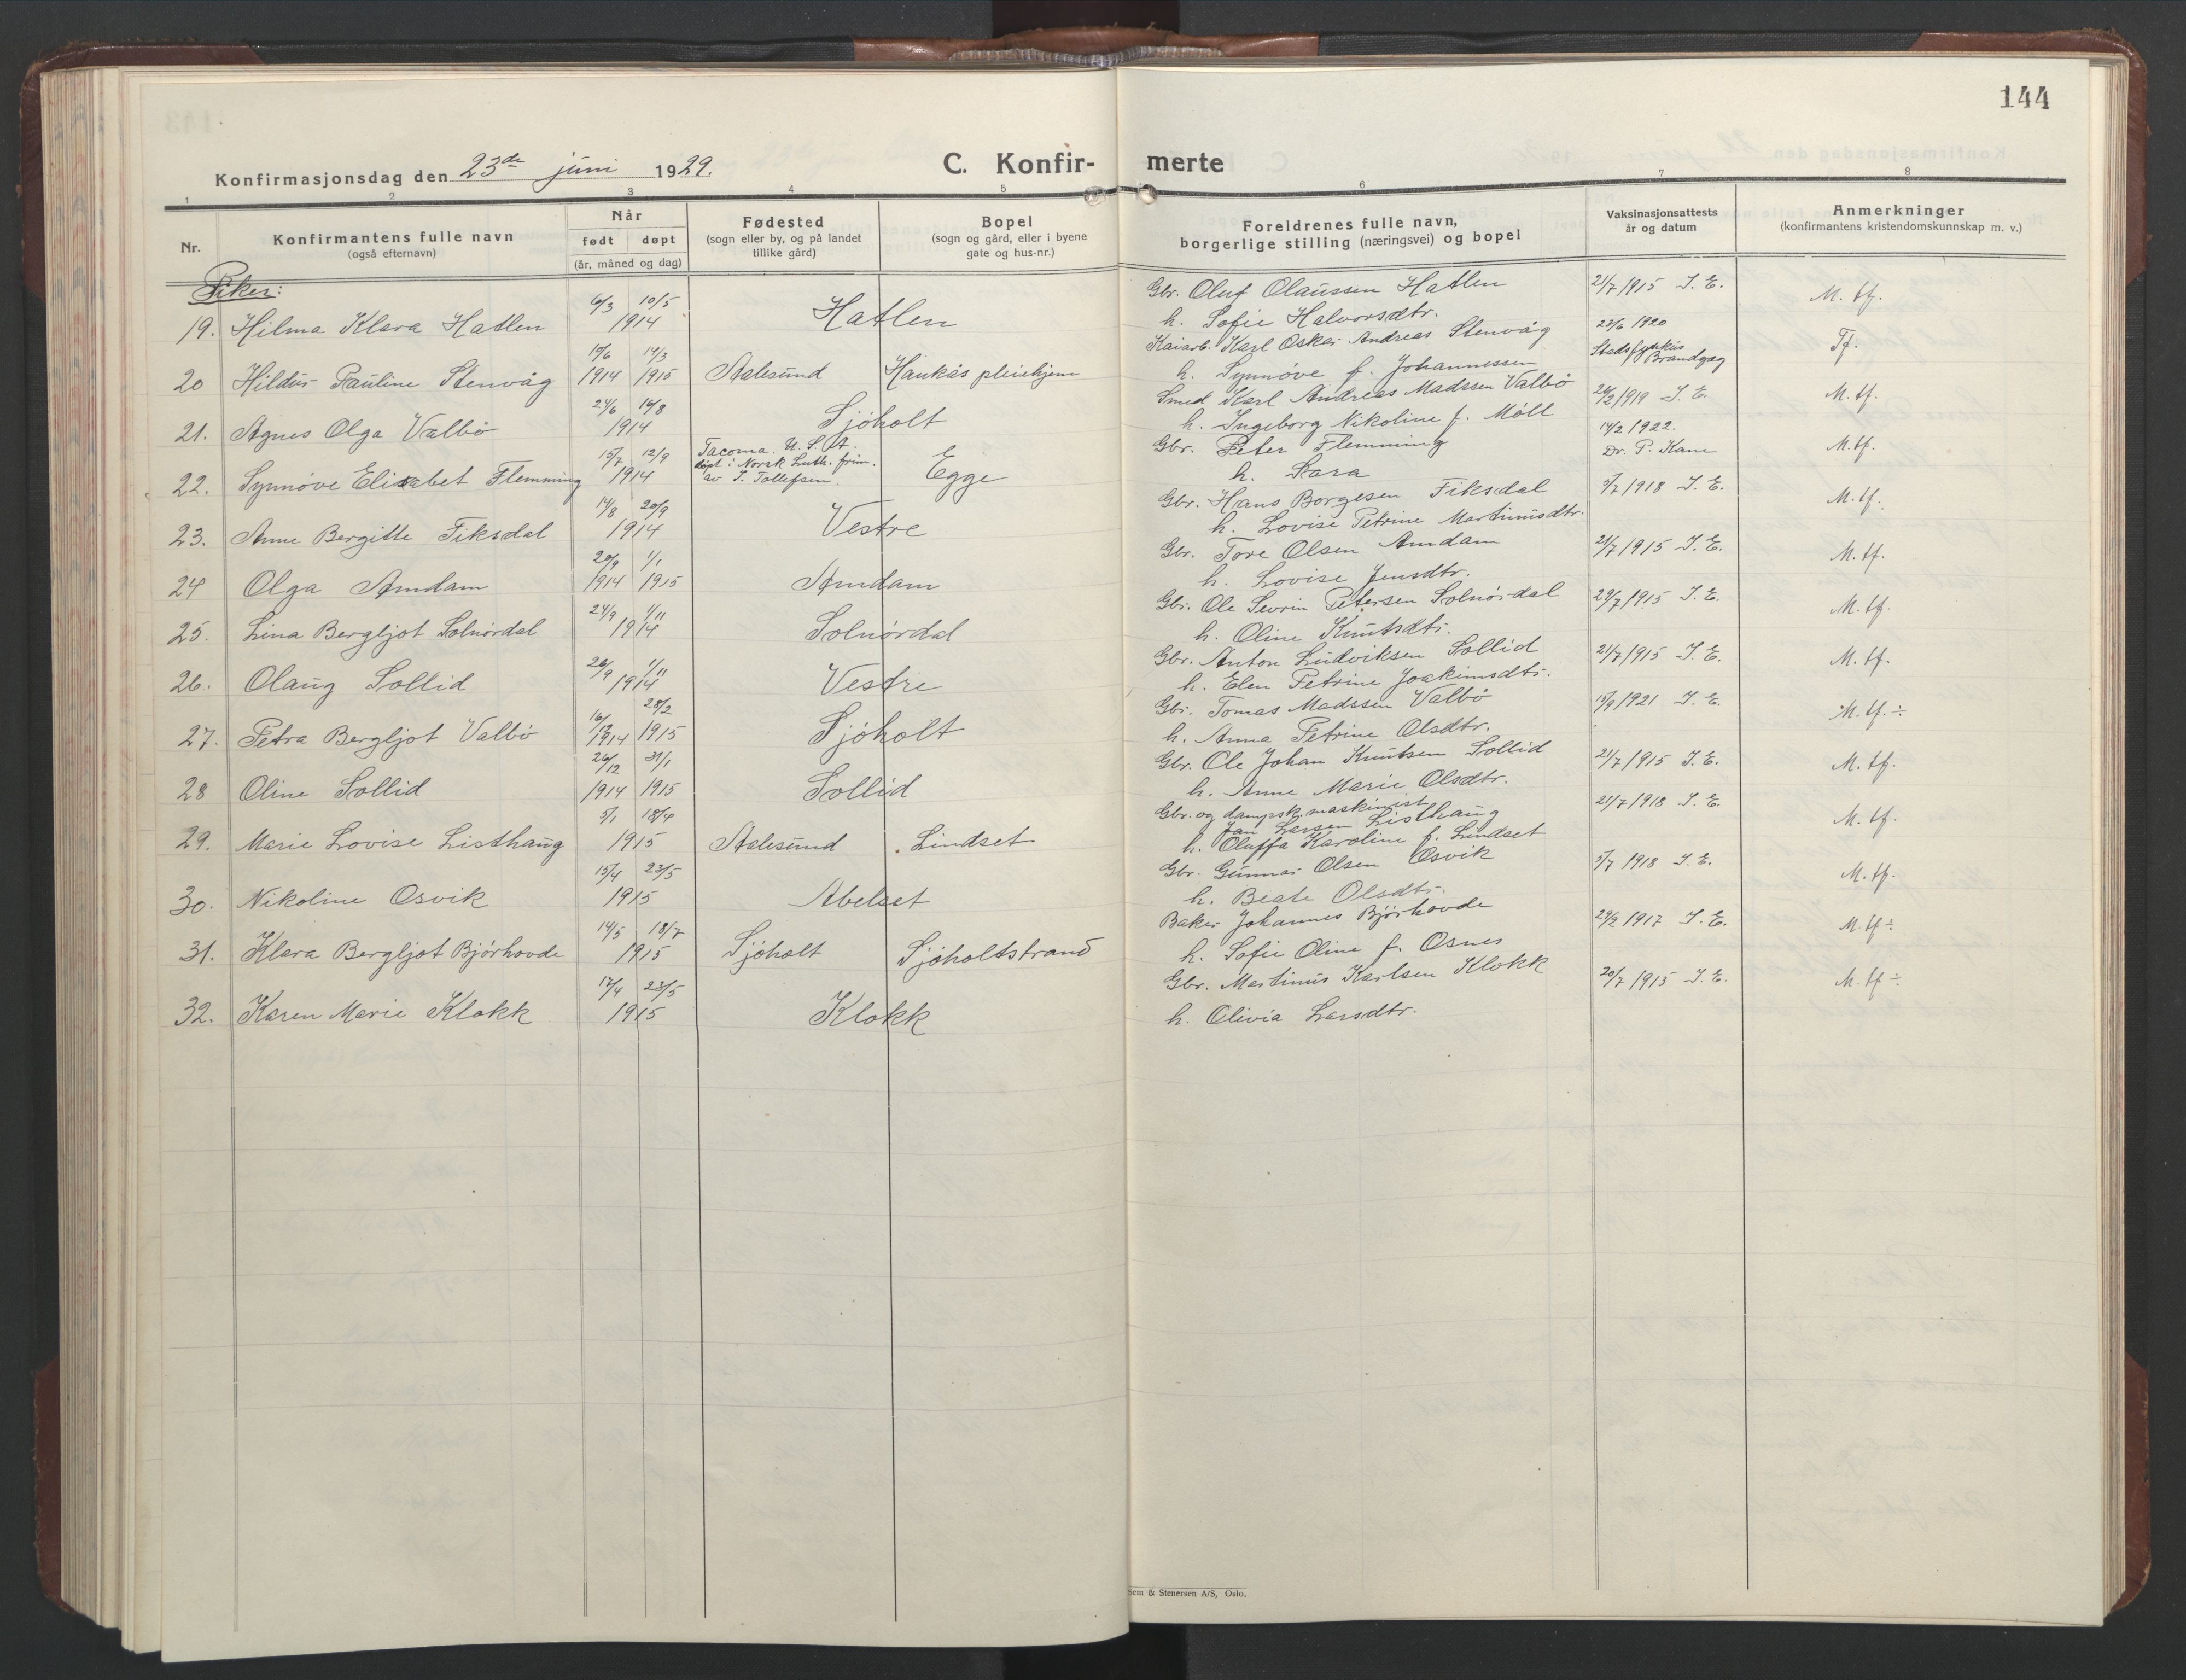 144
Konfirmasjonsdag den 23de juni 1929.
C. Konfir-merte
1 2 3 4 5 6 7 8
Nr.
Konfirmantens fulle navn
(også efternavn)
Når
født døpt
(år, måned og dag)
Fødested
(sogn eller by, og på landet
tillike gård)
Bopel
(sogn og gård, eller i byene
gate og hus-nr.)
Foreldrenes fulle navn,
borgerlige stilling (næringsvei) og bopel
Vaksinasjonsattests
år og datum
Anmerkninger
(konfirmantens kristendomskunnskap m. v.)
Piker:
19. Hilma Klara Hatlen 6/3 10/5 1914 Hatlen Gbr. Oluf Olaussen Hatlen 21/7 1915 I. E. M. tf.
h. Sofie Halvorsdtr.
20 Pauline Stenvåg 1914 14/3 1915 Aalesund Haukås pleiehjem Kaiarb. Karl Oskar Andreas Stenvåg 23/6 1920 Tf.
h. Synnöve f. Johannessen
21. Agnes Olga Valbö 24/6 16/8 1914 Sjöholt Smed Karl Andreas Madssen Valbö 1919 I. E. M. tf.
h. Ingeborg Nikoline f. Möll
22. Synnöve Elisabet Flemming 15/7 12/9 1914 Tacoma. U. S. A. Egge Gbr. Peter Flemming 14/2 1922. M. tf.
døpt i Norsk Luth. frim.
av T. Tollefsen.
h. Sara Dr. P. Kane
23. Anne Bergitte Fiksdal 14/8 20/9 1914 Vestre Gbr. Hans Borgesen Fiksdal 3/7 1918 I. E. M. tf.
h. Lovise Petrine Martinusdtr.
24 Olga Amdam 20/9 1914 1/1 1915 Amdam Gbr. Tore Olsen Amdam 21/7 1915 I. E. M. tf.
h. Lovise Jensdtr.
25. Lina Bergljot Solnördal 24/9 1/11 1914 Solnördal Gbr. Ole Sevrin Petersen Solnördal 1915 I. E. M. tf.
h. Oline Knutsdtr.
26. Olaug Sollid 26/9 1/11 1914 Vestre Gbr. Anton Ludviksen Sollid 21/7 1915 I. E. M. tf.
h. Elen Petrine Joakimsdtr.
27. Petra Bergljot Valbö 16/12 1914 28/2 1915 Sjöholt Gbr. Tomas Madssen Valbö 15/9 1921 I. E. M. tf. ÷
h. Anna Petrine Olsdtr.
28 Oline Sollid 26/12 1914 31/1 1915 Sollid Gbr. Ole Johan Knutsen Sollid 21/7 1915 I. E. M. tf.
h. Anne Marie Olsdtr.
29. Marie Lovise Listhaug 3/1 18/4 1915 Aalesund Lindset Gbr. og dampsk. maskinist 21/7 1918 I. E. M. tf.
Jan Larsen Listhaug
h. Oluffa Karoline f. Lindset
30. Nikoline Osvik 15/4 23/5 1915 Abelset Gbr. Gunnar Olsen Osvik 3/7 1918 I. E. M. tf.
h. Beate Olsdtr.
31. Klara Bergljot Bjørhovde 14/5 18/7 1915 Sjöholt Sjöholtstrand Baker Johannes Bjørhovde 1917 I. E. M. tf ÷
h. Sofie Oline f. Osnes
32. Karen Marie Klokk 17/4 23/5 1915 Klokk Gbr. Martinus Karlsen Klokk 20/7 1915 I. E. M. tf ÷
h. Olivia Larsdtr.
sem & Stenersen A/S, Oslo.